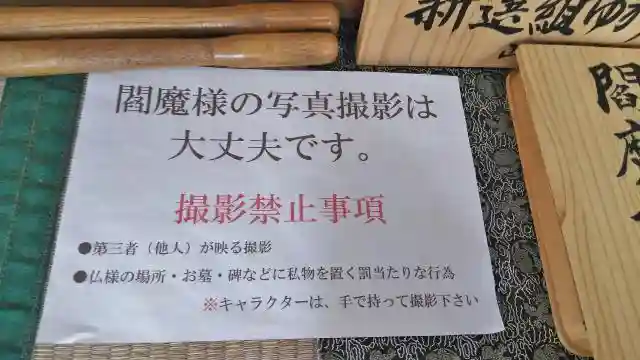 新選組ゆ
閻魔
閻魔様の写真撮影は
大丈夫です。
撮影禁止事項
●第三者（他人）が映る撮影
●仏様の場所・お墓・碑などに私物を置く罰当たりな行為
※キャラクターは、手で持って撮影下さい